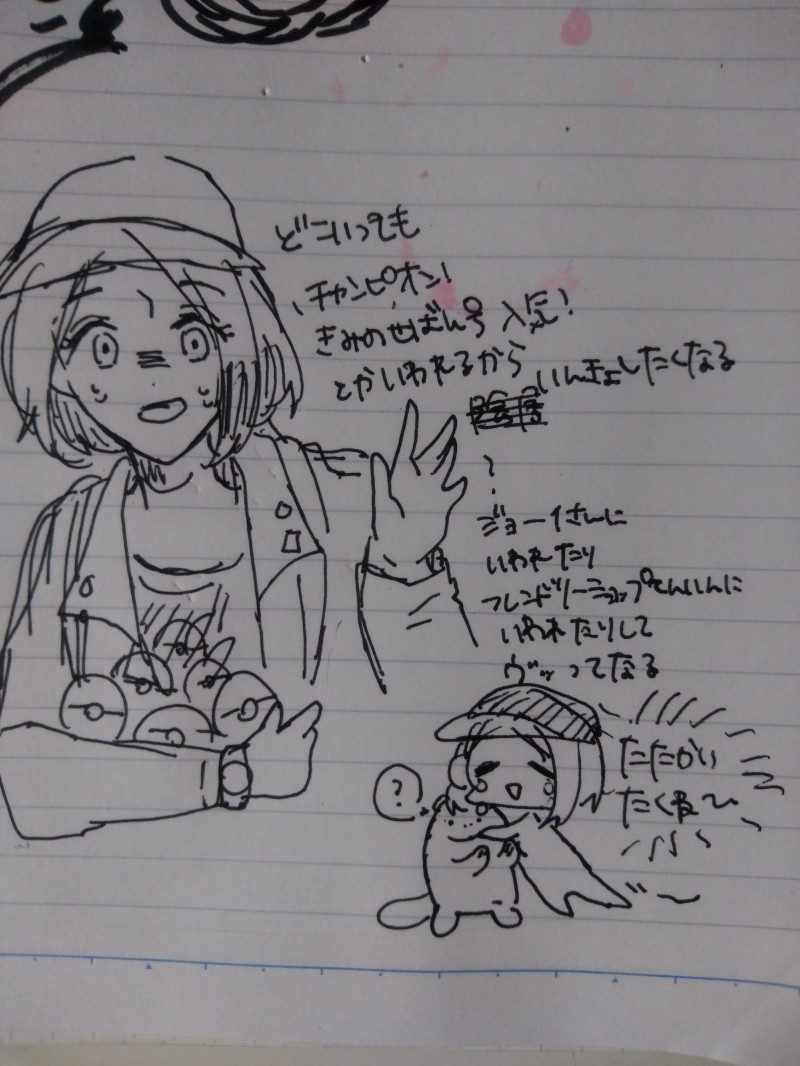 どこいっても
チャンピオン!
きみのせばんごう人気!
とかいわれるから
いんきょしたくなる
?
ジョーイさんに
いわれたり
フレンドリーショップてんいんに
いわれたりして
ヴッってなる
?
たたかい
たくね〜